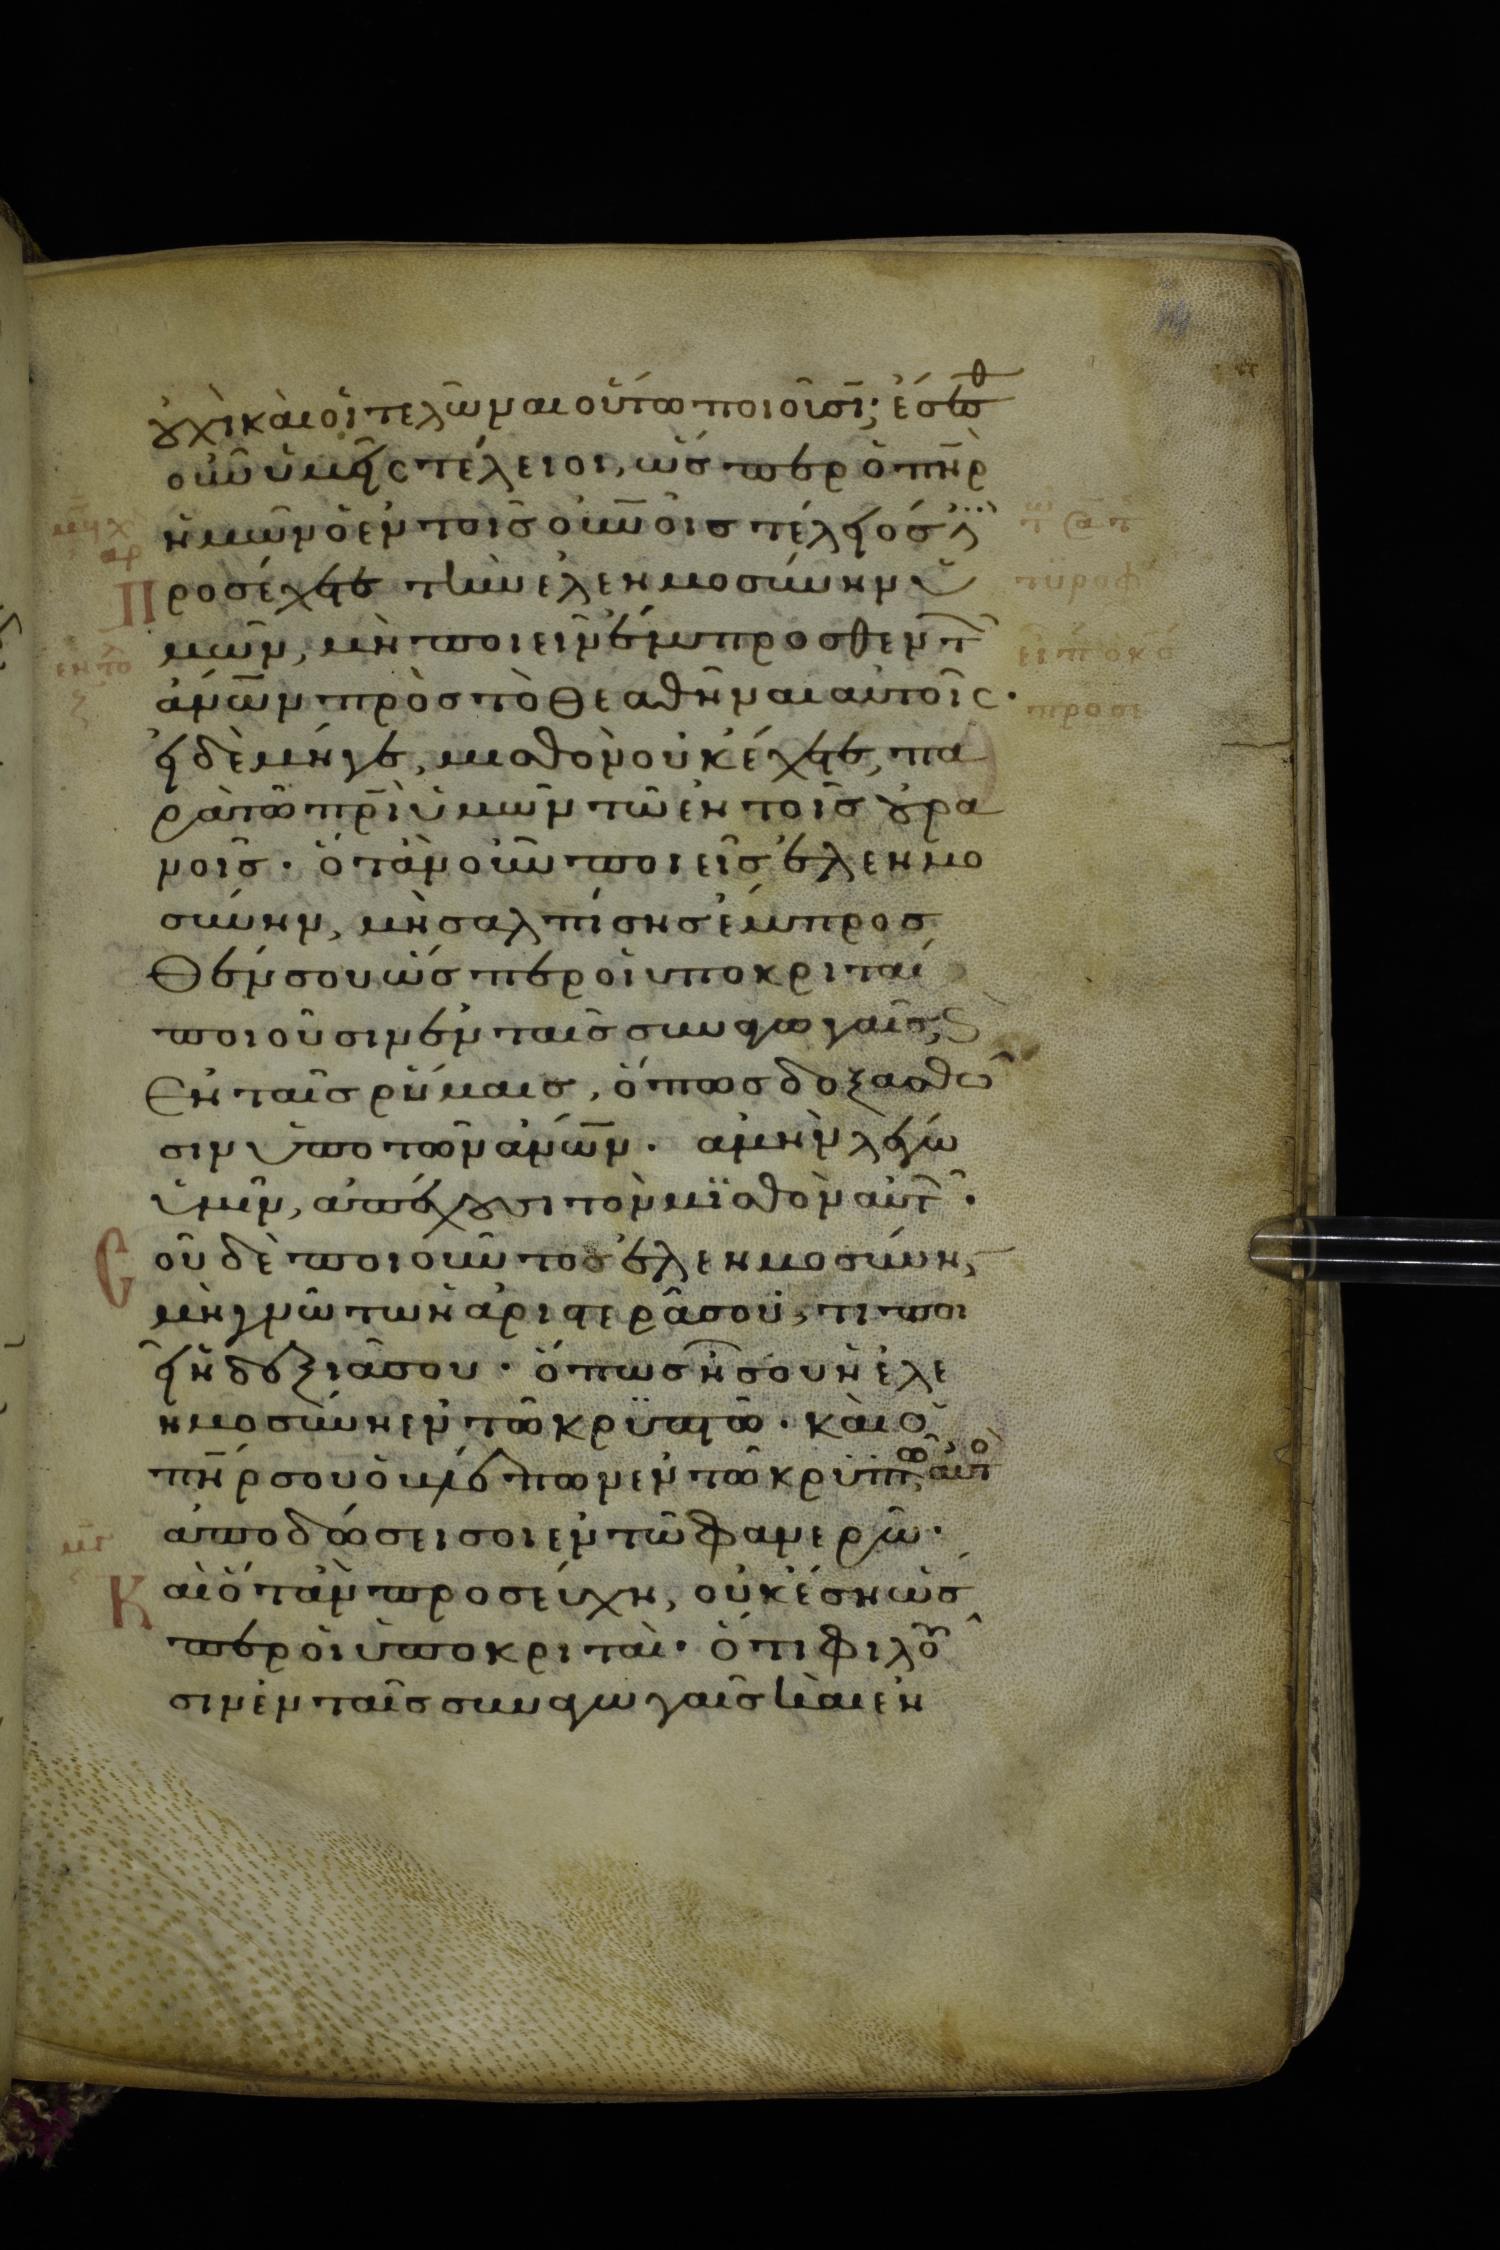 οὐχὶ καὶ οἱ τελῶναι οὕτω ποιοῦσῑ; ἔσεσθ
οὖν ὑμεῖς τέλειοι, ὥσπερ ὁ πηρ
ἡμῶν ὁ ἐν τοῖς οὐνοις τέλειός ἐ
Προσέχετε τὴν ἐλεημοσύνην ὑ
μῶν, μὴ ποιεῖν ἔμπροσθεν τ
ἀνων πρὸς τὸ θεαθῆναι αὐτοῖς.
εἰ δὲ μήγε, μισθὸν οὐκ ἔχετε, πα
ρὰ τῶ πρι ὑμῶν τῶ ἐν τοῖς οὐρα
νοῖς. ὅτὰν οὖν ποιεῖς ἐλεημο
σύνην, μὴ σαλπίσης ἔμπροσ
θέν σου ὥσπερ οἱ υποκριταί
ποιοῦσιν ἐν ταῖς συναγωγαῖς, καὶ
ἐν ταῖς ρύμαις, ὅπως δοξασθῶ
σιν ὑπο τῶν ἀνων. αμὴν λέγω
ὑμῖν, ἀπέχουσι τὸν μισθὸν αὐτ.
Σοῦ δὲ ποιοῦντος ἐλεημοσύνη,
μὴ γνῶτω ἡ ἀριστερᾶ σου, τι ποι
εῖ ἡ δεξιᾶ σου. ὅπως ἦ σου ἡ ἐλε
ημοσύνη ἐν τῶ κρϋπτῶ. καὶ ὁ
πηρ σου ὁ βλέπων ἐν τῶ κρυπτῶ, αὐτὸ
ἀποδώσει σοι ἐν τῶ φανερῶ.
Καὶ ὅτὰν προσεύχη, οὐκ έση ὥσ
περ οἱ ὑποκριταὶ. ὅτι φιλοῦ
σιν ἐν ταῖς συναγωγαῖς καὶ ἐν